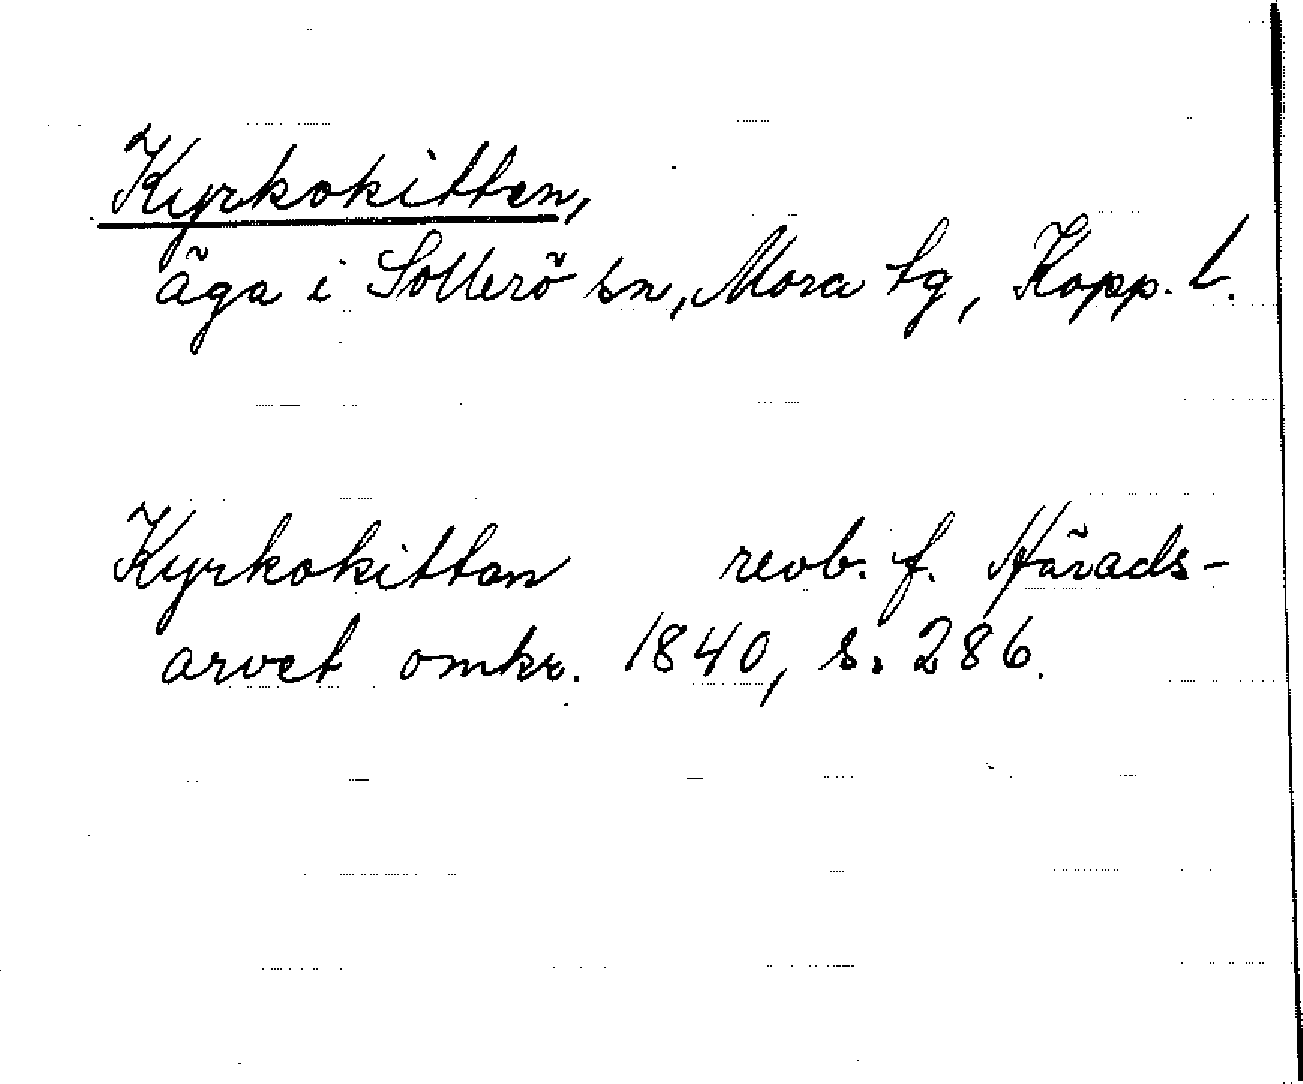 Kyrkokittan,
äga i Sollerö sn, Mora tg, Kopp. l.
Kyrkokittan revb. f. Härads-
arvet omkr. 1840, s. 286.